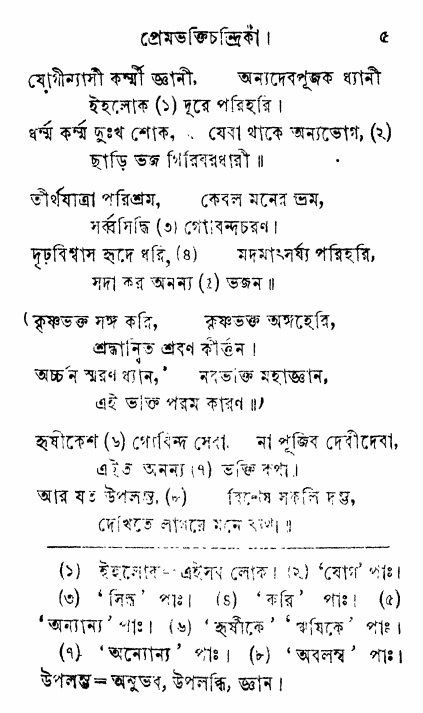 প্রেমভক্তিচন্দ্রিকা। ৫
যোগীন্যাসী কর্ম্মী জ্ঞানী, অন্যদেবপূজক ধ্যানী
ইহলোক (১) দূরে পরিহরি।
ধর্ম্ম কর্ম্ম দুঃখ শোক, যেবা থাকে অন্যভোগ, (২)
ছাড়ি ভজ গিরিবরধারী॥
তীর্থযাত্রা পরিশ্রম, কেবল মনের ভ্রম,
সর্ব্বসিদ্ধি (৩) গোবিন্দচরণ।
দৃঢ়বিশ্বাস হৃদে ধরি, (৪) মদমাৎসর্য্য পরিহরি,
সদা কর অনন্য (৫) ভজন॥
(কৃষ্ণভক্ত সঙ্গ করি, কৃষ্ণভক্ত অঙ্গহেরি,
শ্রদ্ধান্বিত শ্রবণ কীর্ত্তন।
অর্চ্চন স্মরণ ধ্যান, নবভক্তি মহাজ্ঞান,
এই ভক্তি পরম কারণ॥)
হৃষীকেশ (৬) গোবিন্দ সেবা, না পূজিব দেবীদেবা,
এইত অনন্য (৭) ভক্তি কথা।
আর যত উপলম্ভ, (৮) বিশেষ সকলি দম্ভ,
দেখিতে লাগয়ে মনে ব্যথা॥
(১) ইহলোক—এইসব লোক। (২) ‘যোগ’ পাঃ।
(৩) ‘সিদ্ধ’ পাঃ। (৪) ‘করি’ পাঃ। (৫)
‘অন্যান্য’ পাঃ। (৬) ‘হৃষীকে’ ‘ঋষিকে’ পাঃ।
(৭) ‘অন্যোন্য’ পাঃ। (৮) ‘অবলম্ব’ পাঃ।
উপলম্ভ = অনুভব, উপলব্ধি, জ্ঞান।